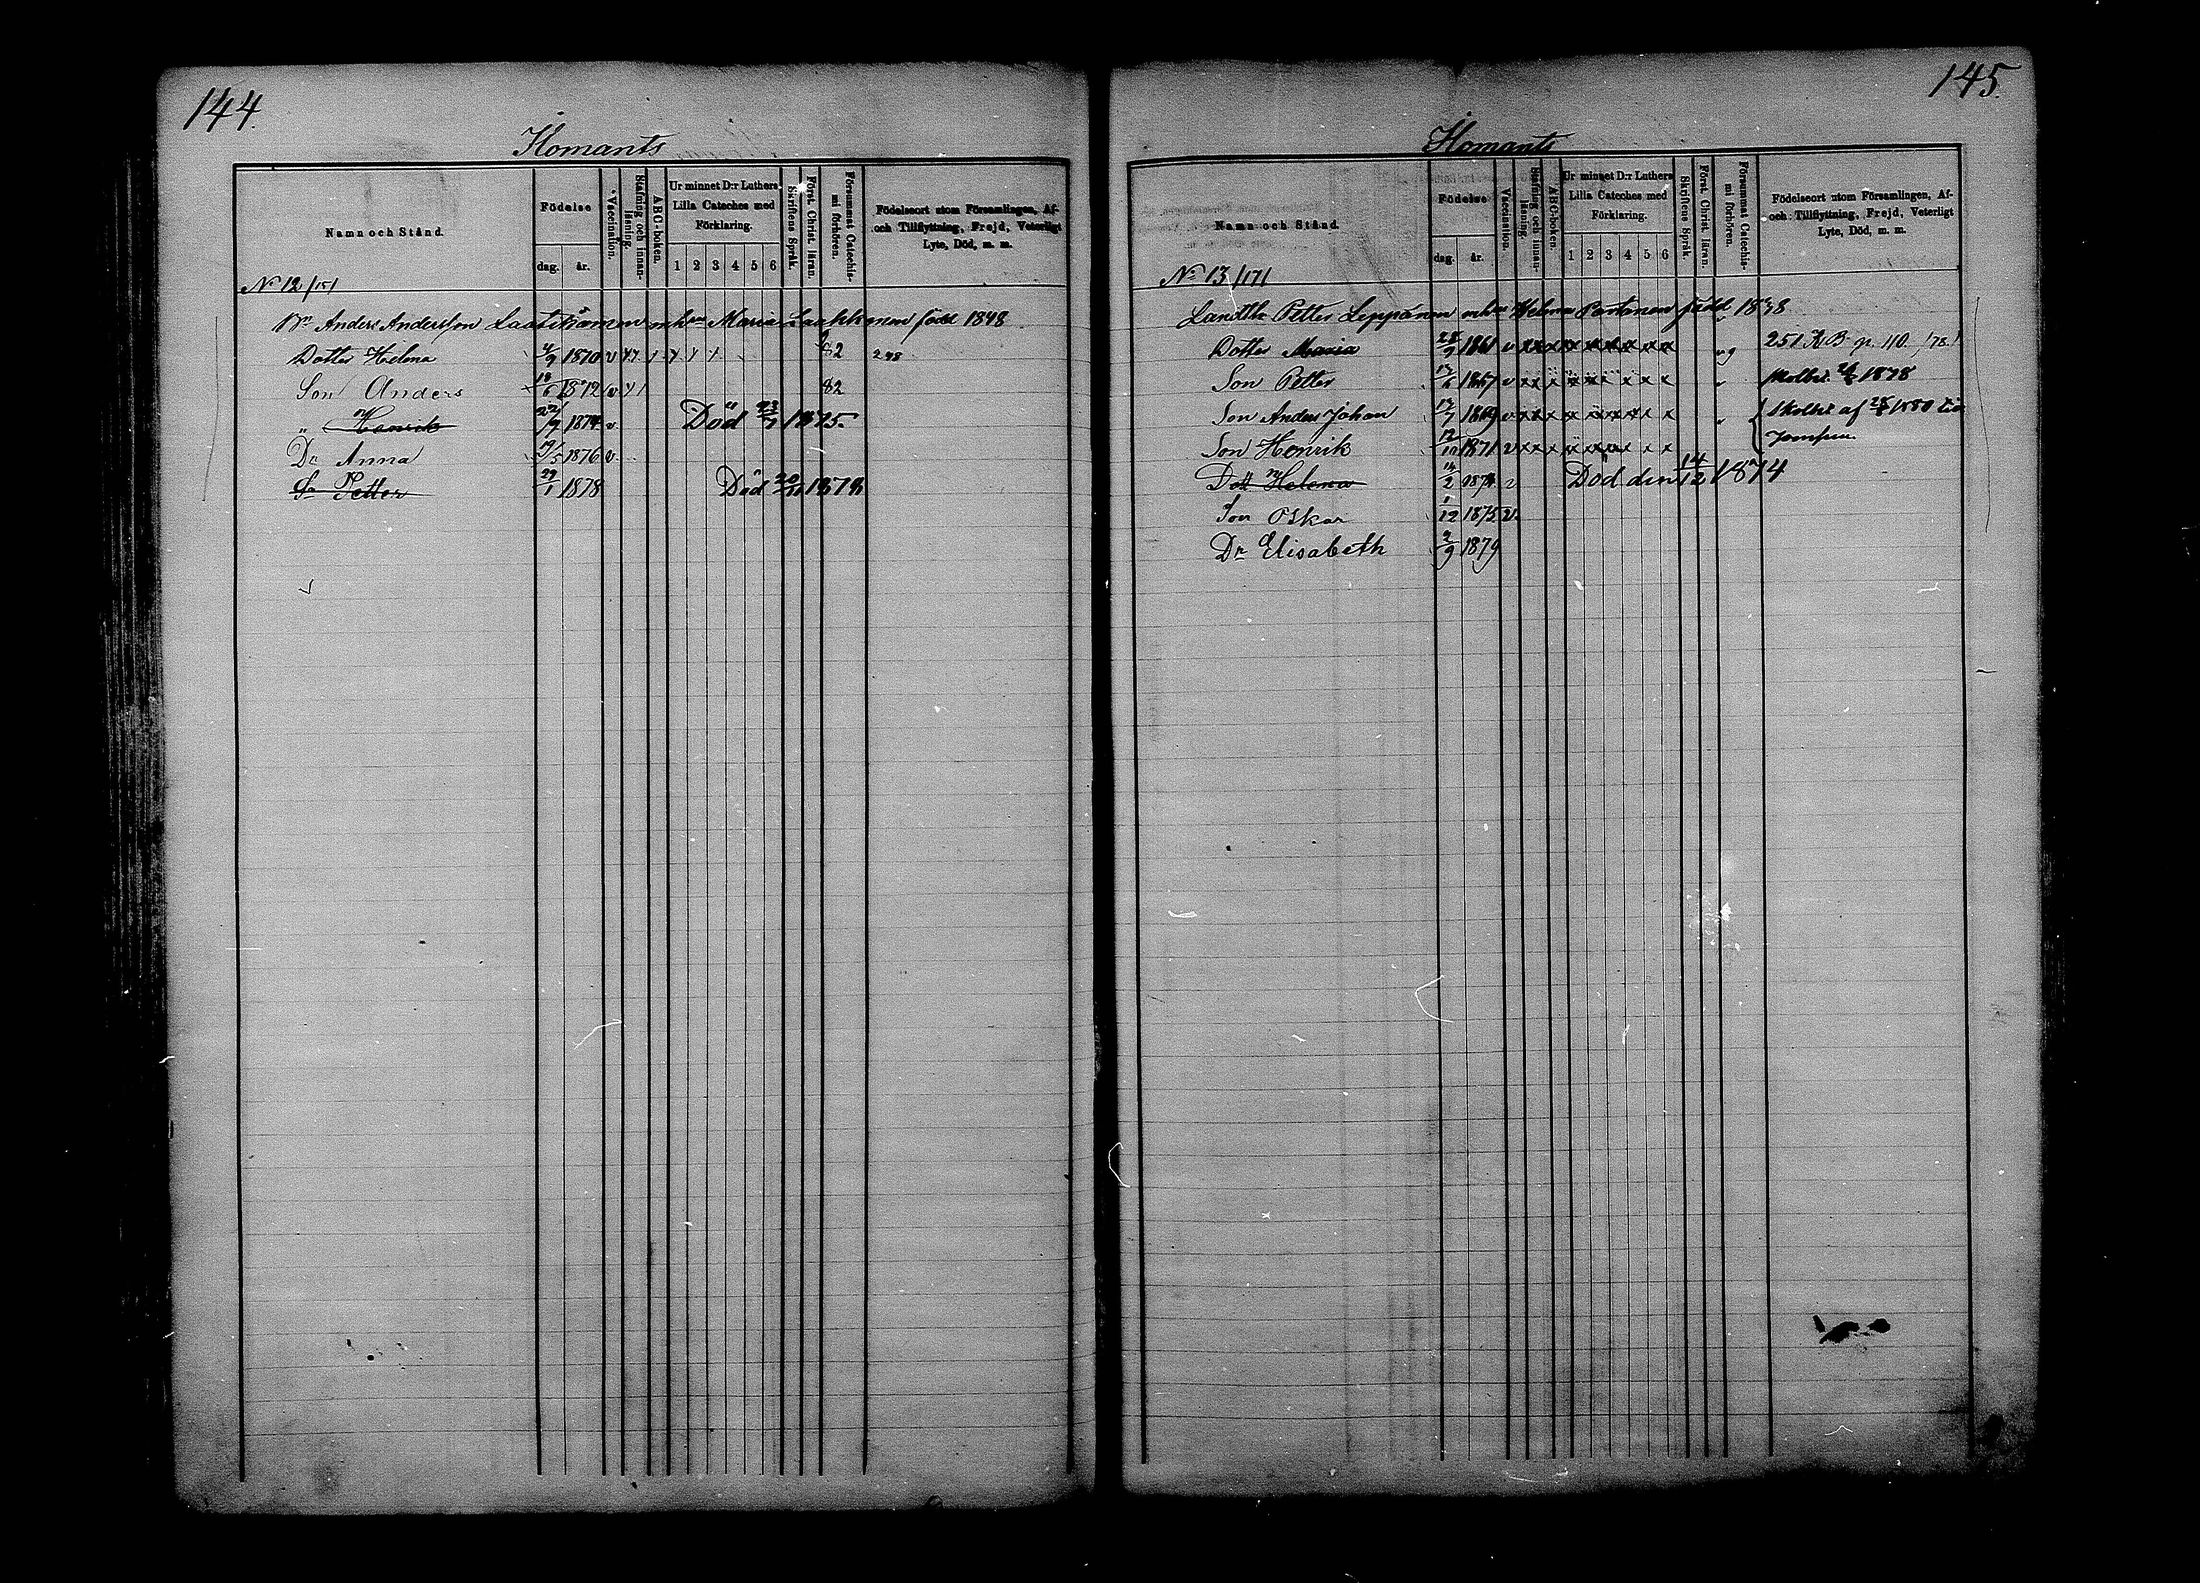 144.
Ilomants
Namn och Stånd.
Födelse
dag. år.
Vaccination.
Stafning och innanläsning.
ABC-boken.
Ur minnet D:r Luthers Lilla Cateches med Förklaring.
1 2 3 4 5 6
Skriftens Språk.
Först. Christ. läran.
Försummat Catechismi förhören.
Födelseort utom Församlingen, Af- och Tillflyttning, Frejd, Veterligt Lyte, Död, m. m.
No 12/151
Bn Anders Andersson Laatikainen o h hu Maria Laakkonen född 1848
Dotter Helena 4/9 1870 v 82 248
Son Anders 18/6 1872 v 82
" Henrik 22/9 1874 v. Död 23/7 1875.
Dr Anna 19/5 1876 v.
Sn Petter 29/1 1878 Död 1878
145.
Ilomants
Namn och Stånd.
Födelse
dag. år.
Vaccination.
Stafning och innanläsning.
ABC-boken.
Ur minnet D:r Luthers Lilla Cateches med Förklaring.
1 2 3 4 5 6
Skriftens Språk.
Först. Christ. läran.
Försummat Catechismi förhören.
Födelseort utom Församlingen, Af- och Tillflyttning, Frejd, Veterligt Lyte, Död, m. m.
No 13/171
Petter Leppänen Helena Partanen född 1838
Dotter Maria 1861 v x x x x x x x x x 251 K B p. 110. /78./
Son Petter 1867 v x x x x x x x x x 1878
Son Anders Johan 1869 v x x x x x x x x x af 1880
Son Henrik 12/10 1871 v x x x x x x x x x
Dott Helena 14/2 1874 v Död den 14/12 1874
Son Oskar 1/12 1875 v.
Dr Elisabeth 2/9 1879